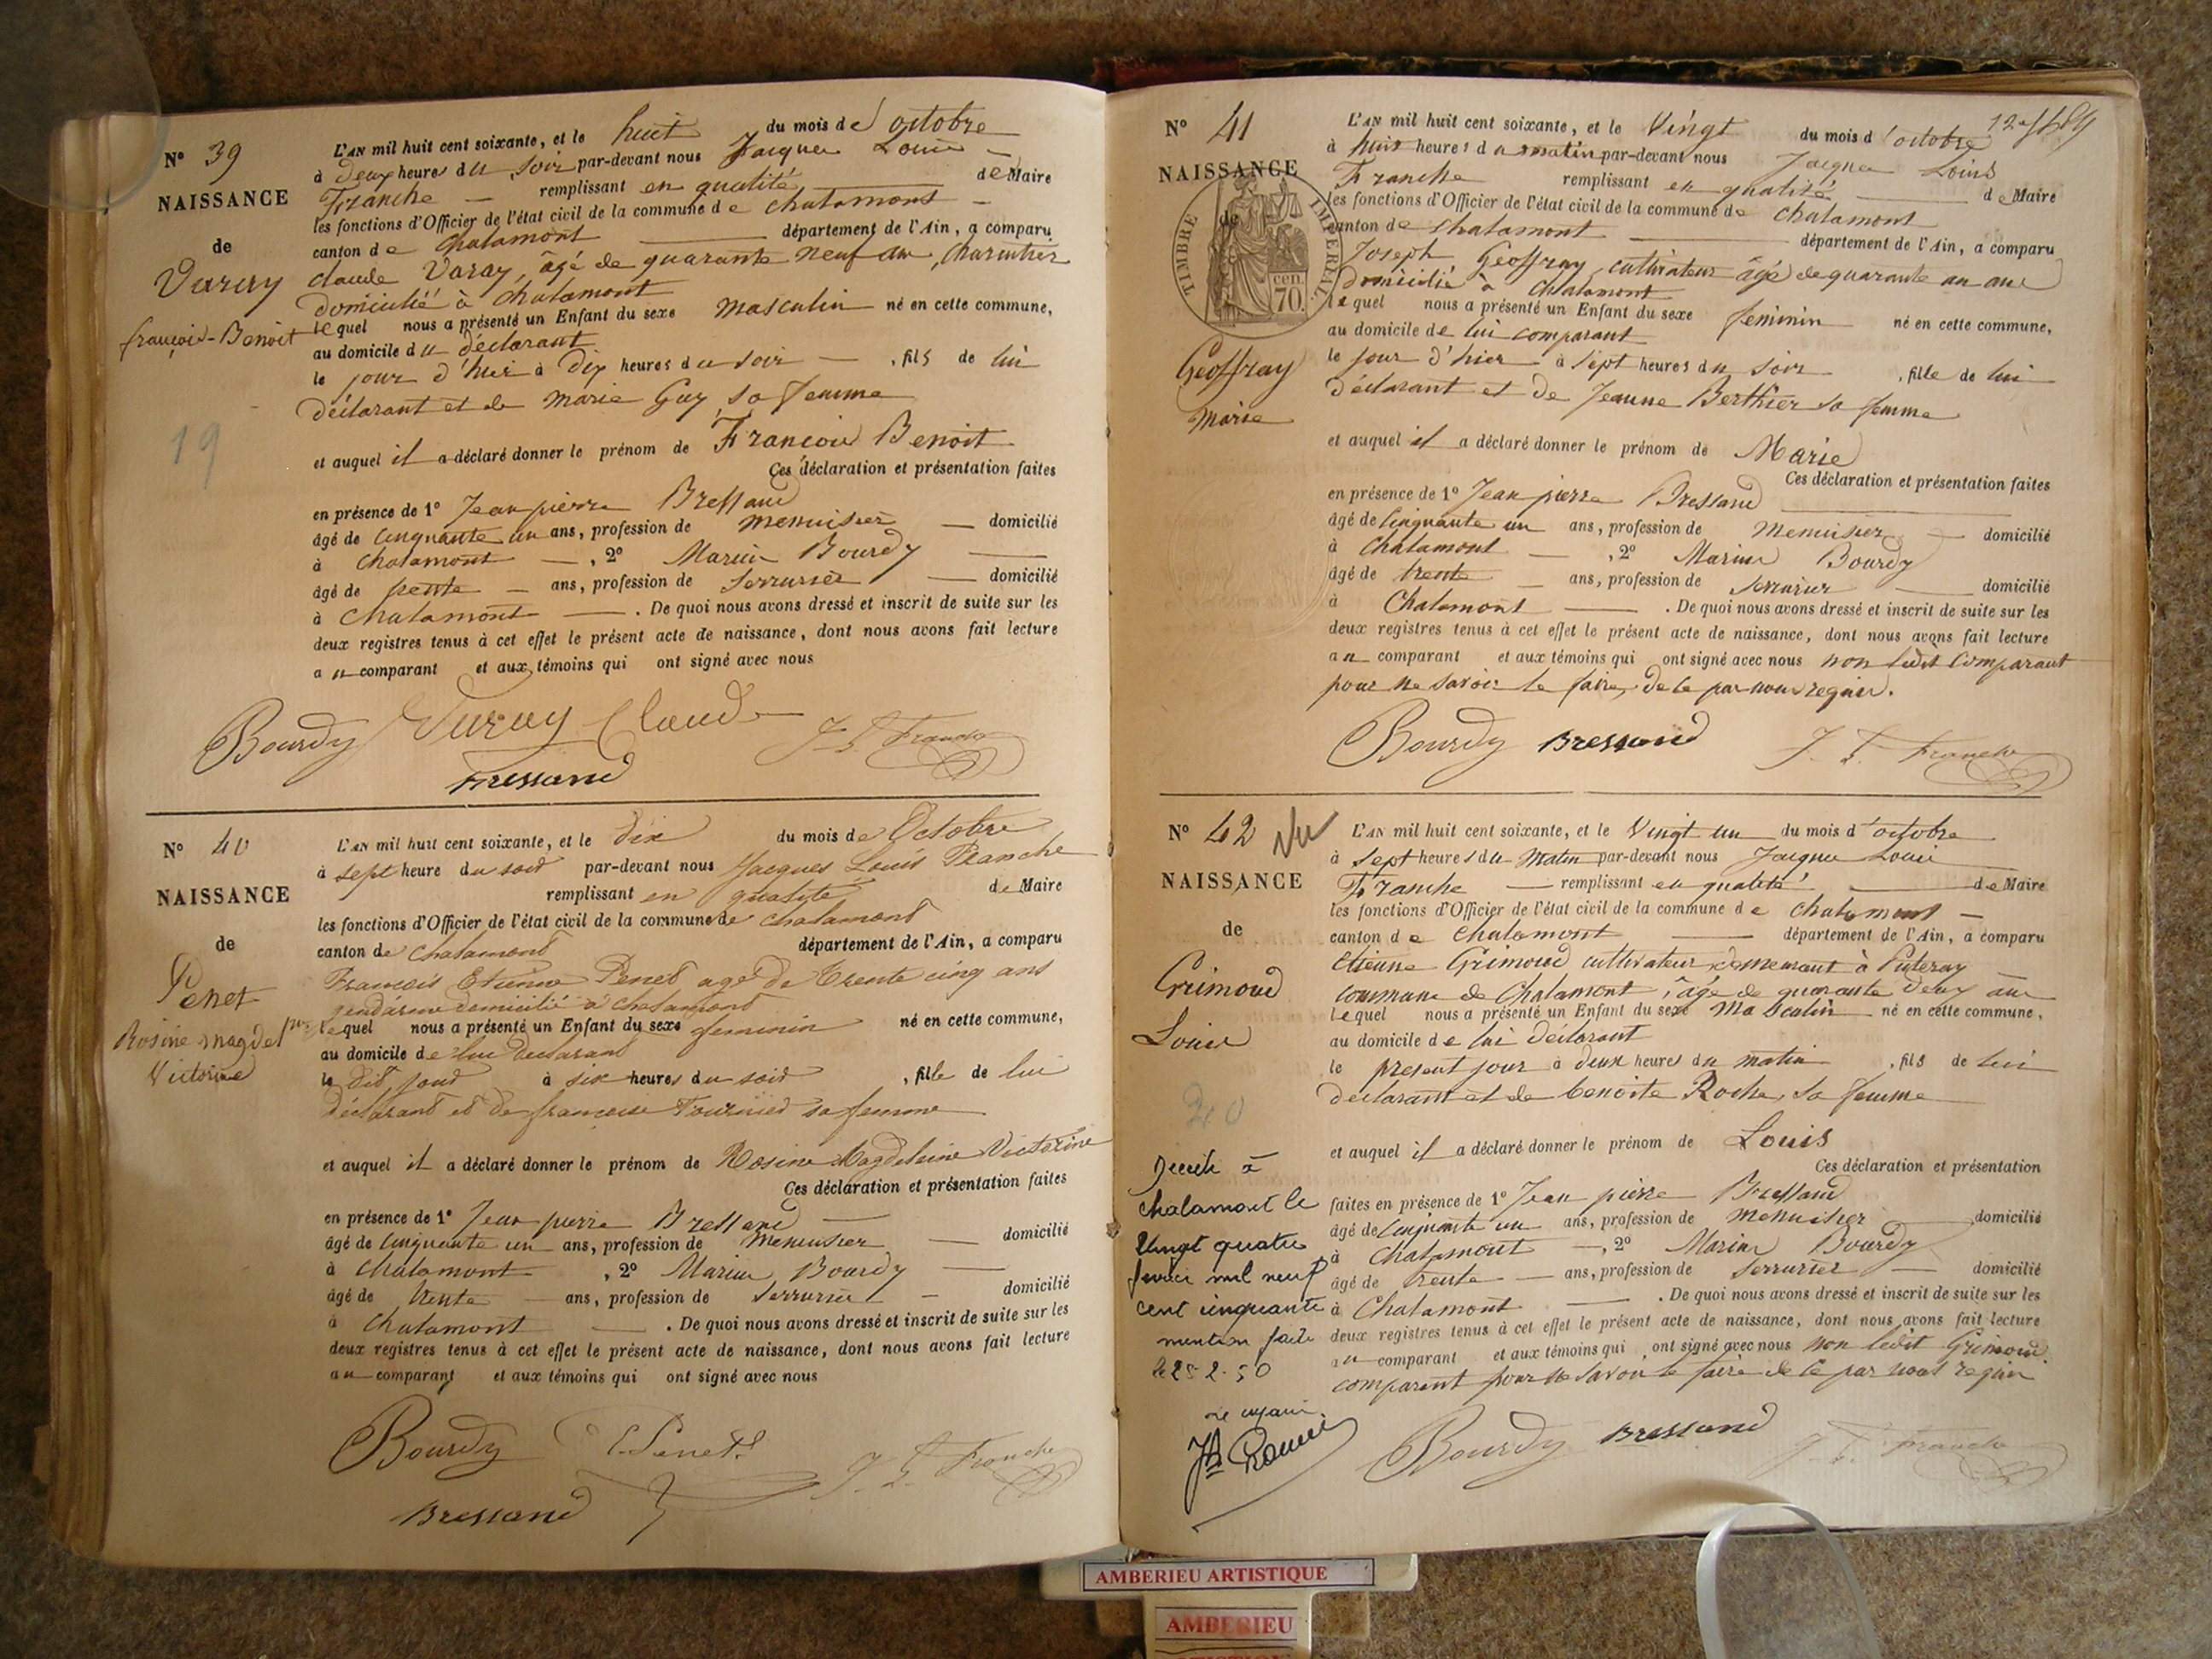 N° 39
NAISSANCE
de
Varay
françois-Benoit
19
L'AN mil huit cent soixante, et le huit du mois d'octobre
à deux heures du soir par-devant nous Jacques Louis
Franche remplissant en qualité de Maire
les fonctions d'Officier de l'état civil de la commune de chalamont
canton de chalamont département de l'Ain, a comparu
claude Varay, âgé de quarante neuf ans, charcutier
domicilié à chalamont
lequel nous a présenté un Enfant du sexe masculin né en cette commune,
au domicile du déclarant
le jour d'hier à dix heures du soir, fils de lui
déclarant et de marie Guy sa femme
et auquel il a déclaré donner le prénom de François Benoit
Ces déclaration et présentation faites
en présence de 1° Jean pierre Bressand
âgé de cinquante un ans, profession de menuisier domicilié
à chalamont, 2° Marius Bourdy
âgé de trente ans, profession de serrurier domicilié
à chalamont. De quoi nous avons dressé et inscrit de suite sur les
deux registres tenus à cet effet le présent acte de naissance, dont nous avons fait lecture
au comparant et aux témoins qui ont signé avec nous
Bourdy Varay Claude J. L. Franche
Bressand
N° 40
NAISSANCE
de
Penet
Rosine magdel
Victorine
L'AN mil huit cent soixante, et le dix du mois de Octobre
à sept heure du soir par-devant nous Jacques Louis Franche
remplissant en qualité de Maire
les fonctions d'Officier de l'état civil de la commune de chalamont
canton de chalamont département de l'Ain, a comparu
François Etienne Penet agé de trente cinq ans
gendarme domicilié à chalamont
lequel nous a présenté un Enfant du sexe feminin né en cette commune,
au domicile de lui declarant
le dit jour à six heures du soir, fille de lui
déclarant et de françoise Tournier sa femme
et auquel il a déclaré donner le prénom de Rosine Magdeleine Victorine
Ces déclaration et présentation faites
en présence de 1° Jean pierre Bressand
âgé de cinquante un ans, profession de menuisier domicilié
à chalamont, 2° Marius Bourdy
âgé de trente ans, profession de serrurier domicilié
à chalamont. De quoi nous avons dressé et inscrit de suite sur les
deux registres tenus à cet effet le présent acte de naissance, dont nous avons fait lecture
au comparant et aux témoins qui ont signé avec nous
Bourdy Penet J. L. Franche
Bressand
N° 41
NAISSANCE
de
TIMBRE IMPERIAL
70 cen
Geoffray
Marie
L'AN mil huit cent soixante, et le Vingt du mois d'octobre
à huit heures du matin par-devant nous Jacques Louis
Franche remplissant en qualité de Maire
les fonctions d'Officier de l'état civil de la commune de chalamont
canton de chalamont département de l'Ain, a comparu
Joseph Geoffray cultivateur âgé de quarante un ans
domicilié à chalamont
lequel nous a présenté un Enfant du sexe feminin né en cette commune,
au domicile de lui comparant
le jour d'hier à sept heures du soir, fille de lui
déclarant et de Jeanne Berthier sa femme
et auquel il a déclaré donner le prénom de Marie
Ces déclaration et présentation faites
en présence de 1° Jean pierre Bressand
âgé de cinquante un ans, profession de menuisier domicilié
à chalamont, 2° Marius Bourdy
âgé de trente ans, profession de serrurier domicilié
à Chalamont. De quoi nous avons dressé et inscrit de suite sur les
deux registres tenus à cet effet le présent acte de naissance, dont nous avons fait lecture
au comparant et aux témoins qui ont signé avec nous non ledit comparant
pour ne savoir le faire, de ce par nous requis.
Bourdy Bressand J. L. Franche
N° 42 vu
NAISSANCE
de
Grimoud
Louis
Décédé à
chalamont le
Vingt quatre
fevrier mil neuf
cent cinquante
mention faite
le 25-2-50
Le maire
L'AN mil huit cent soixante, et le Vingt un du mois d'octobre
à sept heures du matin par-devant nous Jacques Louis
Franche remplissant en qualité de Maire
les fonctions d'Officier de l'état civil de la commune de chalamont
canton de chalamont département de l'Ain, a comparu
Etienne Grimoud cultivateur demeurant à
commune de Chalamont, âgé de quarante deux ans
lequel nous a présenté un Enfant du sexe masculin né en cette commune,
au domicile de lui déclarant
le présent jour à deux heures du matin, fils de lui
déclarant et de benoite Roche, sa femme
et auquel il a déclaré donner le prénom de Louis
Ces déclaration et présentation
faites en présence de 1° Jean pierre Bressand
âgé de cinquante un ans, profession de menuisier domicilié
à Chalamont, 2° Marius Bourdy
âgé de trente ans, profession de serrurier domicilié
à Chalamont. De quoi nous avons dressé et inscrit de suite sur les
deux registres tenus à cet effet le présent acte de naissance, dont nous avons fait lecture
au comparant et aux témoins qui ont signé avec nous non ledit Grimoud
comparant pour ne savoir le faire de ce par nous requis
Bourdy Bressand J. L. Franche
AMBERIEU ARTISTIQUE
AMBERIEU